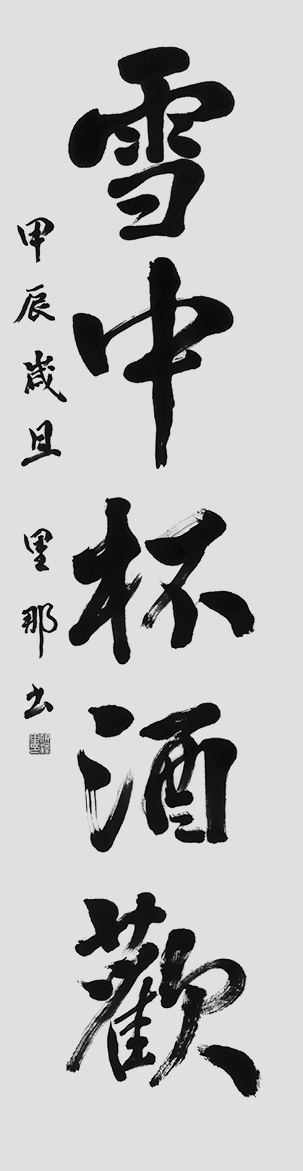 雪中杯酒歡
甲辰歲旦 里那书